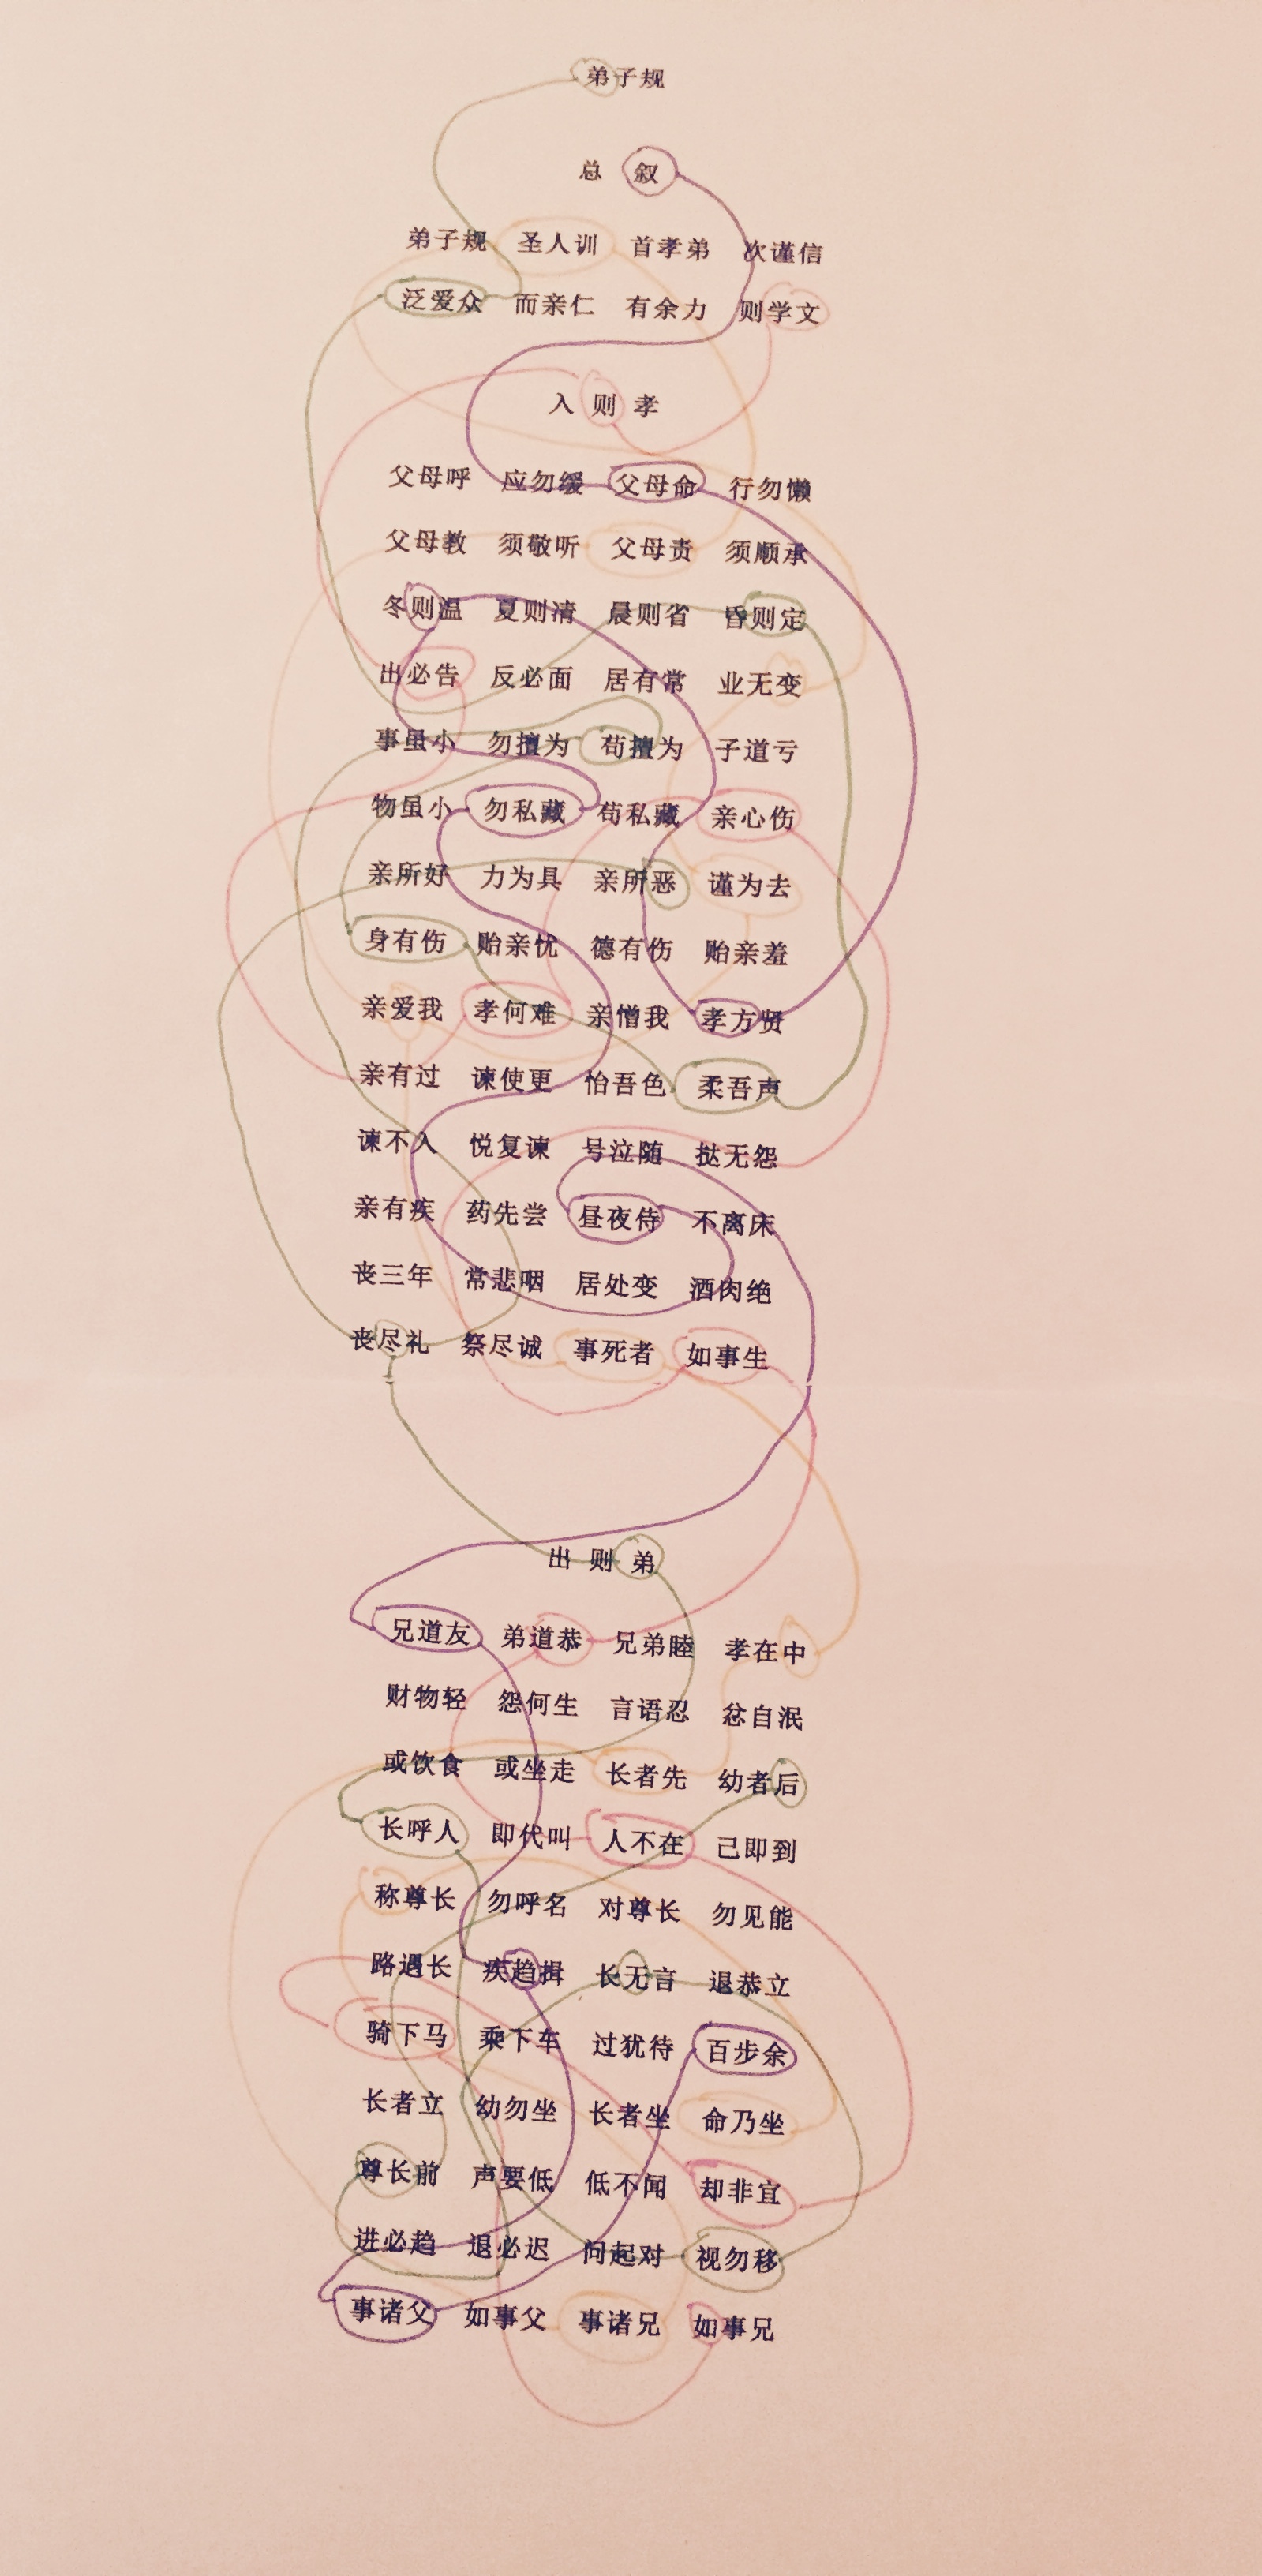 弟子规
总 叙
弟子规 圣人训 首孝弟 次谨信
泛爱众 而亲仁 有余力 则学文
入 则 孝
父母呼 应勿缓 父母命 行勿懒
父母教 须敬听 父母责 须顺承
冬则温 夏则凊 晨则省 昏则定
出必告 反必面 居有常 业无变
事虽小 勿擅为 苟擅为 子道亏
物虽小 勿私藏 苟私藏 亲心伤
亲所好 力为具 亲所恶 谨为去
身有伤 贻亲忧 德有伤 贻亲羞
亲爱我 孝何难 亲憎我 孝方贤
亲有过 谏使更 怡吾色 柔吾声
谏不入 悦复谏 号泣随 挞无怨
亲有疾 药先尝 昼夜侍 不离床
丧三年 常悲咽 居处变 酒肉绝
丧尽礼 祭尽诚 事死者 如事生
出 则 弟
兄道友 弟道恭 兄弟睦 孝在中
财物轻 怨何生 言语忍 忿自泯
或饮食 或坐走 长者先 幼者后
长呼人 即代叫 人不在 己即到
称尊长 勿呼名 对尊长 勿见能
路遇长 疾趋揖 长无言 退恭立
骑下马 乘下车 过犹待 百步余
长者立 幼勿坐 长者坐 命乃坐
尊长前 声要低 低不闻 却非宜
进必趋 退必迟 问起对 视勿移
事诸父 如事父 事诸兄 如事兄